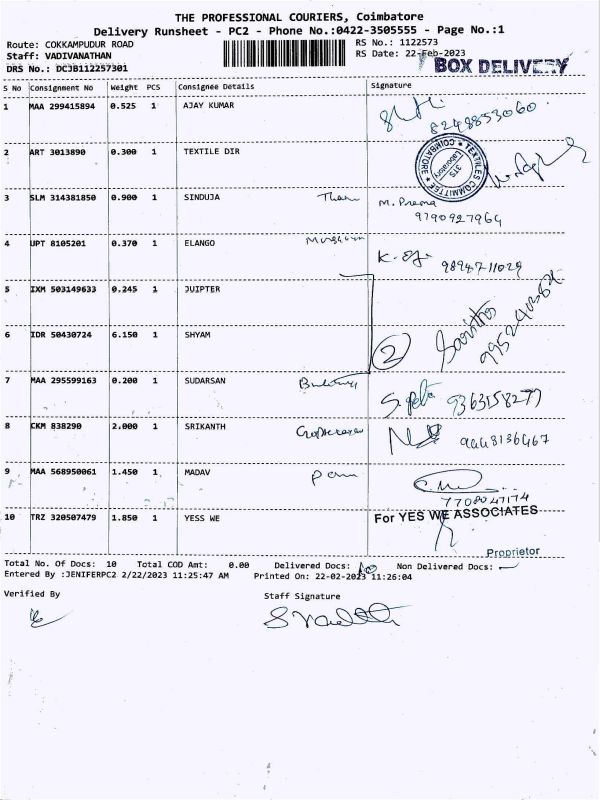 THE PROFESSIONAL COURIERS, Coimbatore
Delivery Runsheet - PC2 - Phone No.:0422-3505555 - Page No.:1
Route: COKKAMPUDUR ROAD RS No.: 1122573
Staff: VADIVANATHAN RS Date: 22-Feb-2023
DRS No.: DCJB112257301 BOX DELIVERY
S No Consignment No Weight PCS Consignee Details Signature
1 MAA 299415894 0.525 1 AJAY KUMAR
8248853060
2 ART 3013890 0.300 1 TEXTILE DIR
TEXTILES COMMITTEE COIMBATORE
Laboratory
3 SLM 314381850 0.900 1 SINDUJA M. Prema
9790927964
4 UPT 8105201 0.370 1 ELANGO
9894711029
5 IXM 503149633 0.245 1 JUIPTER
6 IDR 50430724 6.150 1 SHYAM 2
7 MAA 295599163 0.200 1 SUDARSAN
9363158277
8 CKM 838290 2.000 1 SRIKANTH
9448136467
9 MAA 568950061 1.450 1 MADAV
7708047174
10 TRZ 320507479 1.850 1 YESS WE For YES WE ASSOCIATES
Proprietor
Total No. Of Docs: 10 Total COD Amt: 0.00 Delivered Docs: 10 Non Delivered Docs: —
Entered By :JENIFERPC2 2/22/2023 11:25:47 AM Printed On: 22-02-2023 11:26:04
Verified By Staff Signature